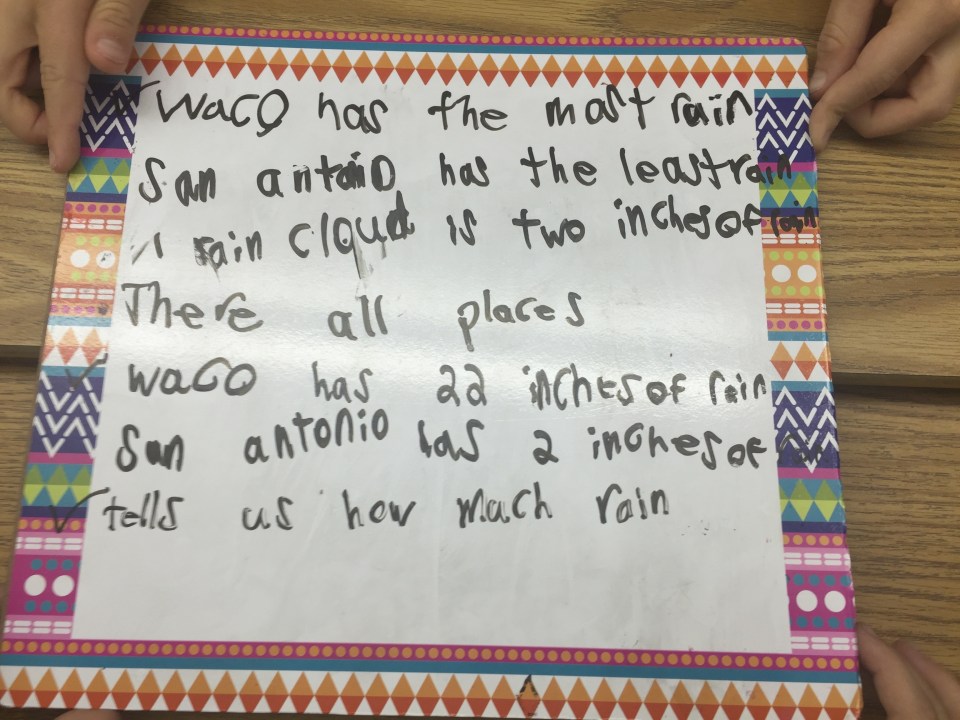 ✓ Waco has the most rain
San antonio has the least rain
1 rain cloud is two inches of rain
There all places
✓ waco has 22 inches of rain
San antonio has 2 inches of rain
✓ tells us how much rain